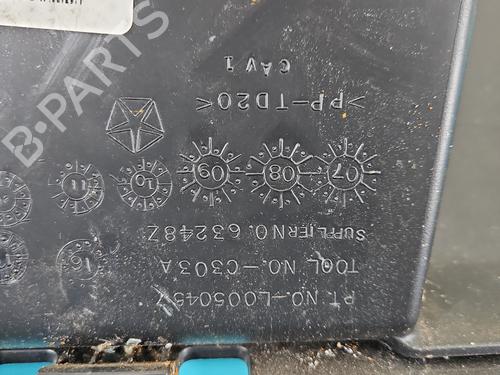 PT NO.-L0050457
TOOL NO.-C303A
SUPPLIER NO. 63248Z
16
07 08 09 10 11
>PP-TD20<
CAV 1
B-PARTS